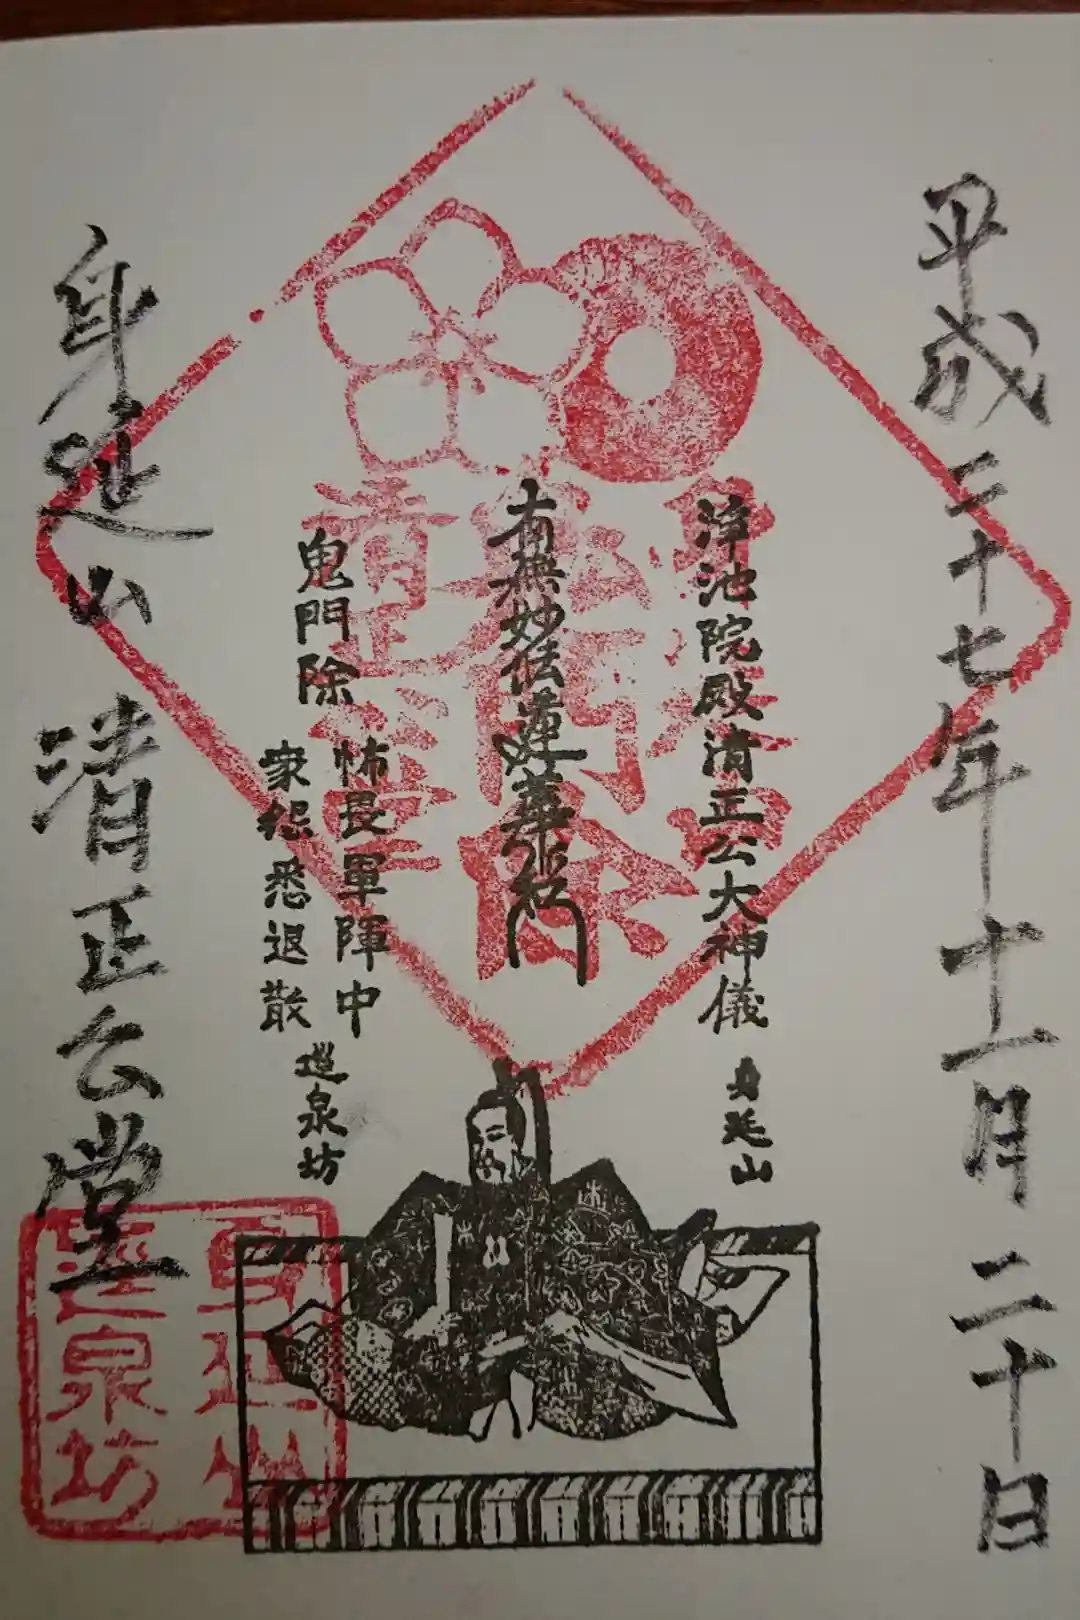 平成二十七年十一月二十日
浄池院殿清正公大神儀
身延山
南無妙法蓮華経
鬼門除
怖畏軍陣中
衆怨悉退散
𨗉泉坊
身延山 清正公堂
鬼門除
清正公
身延山
泉坊